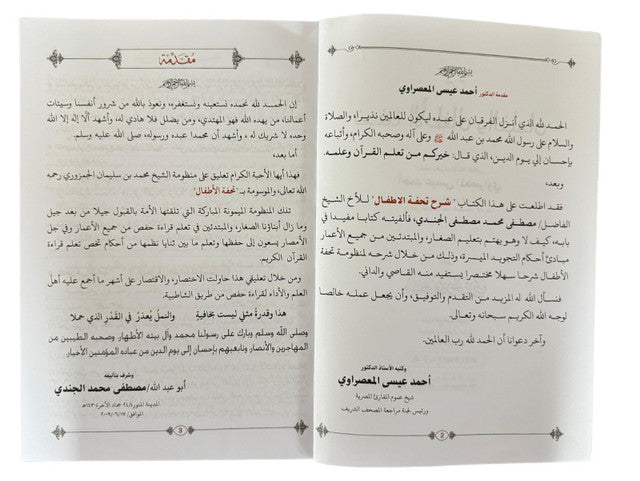 بسم الله الرحمن الرحيم
مقدمة الدكتور أحمد عيسى المعصراوي
الحمد لله الذي أنزل الفرقان على عبده ليكون للعالمين نذيرا، والصلاة
والسلام على رسول الله محمد بن عبد الله ﷺ وعلى آله وصحبه الكرام، وأتباعه
بإحسان إلي يوم الدين، الذي قال: خيركم من تعلم القرآن وعلمه.
وبعد،
فقد اطلعت على هذا الكتاب " شرح تحفة الاطفال " للأخ الشيخ
الفاضل/ مصطفى محمد مصطفى الجندي، فألفيته كتابا مفيدا في
بابه، كيف لا وهو يهتم بتعليم الصغار، والمبتدئين من جميع الأعمار
مبادئ أحكام التجويد الميسرة، وذلك من خلال شرحه لمنظومة تحفة
الأطفال شرحا سهلا مختصرا يستفيد منه القاصي والداني.
فنسأل الله له المزيد من التقدم والتوفيق، وأن يجعل عمله خالصا
لوجه الله الكريم سبحانه وتعالى.
وآخر دعوانا أن الحمد لله رب العالمين.
وكتبه الأستاذ الدكتور
أحمد عيسى المعصراوي
شيخ عموم المقارئ المصرية
ورئيس لجنة مراجعة المصحف الشريف
2
مقدمة
بسم الله الرحمن الرحيم
إن الحمد لله نحمده نستعينه ونستغفره، ونعوذ بالله من شرور أنفسنا وسيئات
أعمالنا، من يهده الله فهو المهتدي، ومن يضلل فلا هادي له، وأشهد ألا إله إلا الله
وحده لا شريك له ، وأشهد أن محمدا عبده ورسوله، صلى الله عليه وسلم.
أما بعد،
فهذا أيها الأحبة الكرام تعليق على منظومة الشيخ محمد بن سليمان الجمزوري رحمه
الله تعالى، والموسومة بـ "تحفة الأطفال"
تلك المنظومة الميمونة المباركة التي تلقتها الأمة بالقبول جيلا من بعد جيل
وما زال أبناؤنا الصغار، والمبتدئين في تعلم قراءة حفص من جميع الأعمار وفي جل
الأمصار يسعون إلى حفظها وتعلم ما بين ثنايا نظمها من أحكام تخص تعلم قراءة
القرآن الكريم.
ومن خلال تعليقي هذا حاولت الاختصار، والاقتصار على أشهر ما أجمع عليه أهل
العلم والأداء لقراءة حفص من طريق الشاطبية.
هذا وقدرة مثلي ليست بخافية والنمل يعذر في القدر الذي حملا
وصلى الله وسلم وبارك على رسولنا محمد وآل بيته الأطهار، وصحبه الطيبين من
المهاجرين والأنصار، وتابعيهم بإحسان إلى يوم الدين من عباده المؤمنين الأخيار.
وشرف بتأليفه
أبو عبد الله/ مصطفى محمد الجندي
3